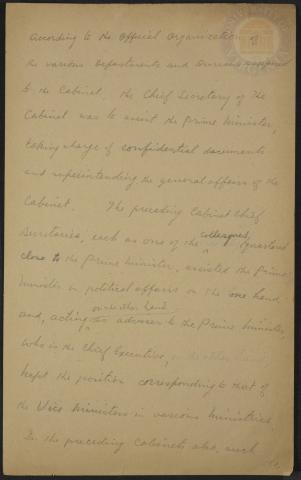 According to the Official Organization of
the various Departments and Bureaus
to the Cabinet. The Chief Secretary of the
Cabinet was to assist the Prime Minister,
taking charge of confidential documents
and superintending the general affairs of the
Cabinet. The preceding Cabinet Chief
colleagues,
Secretaries, each as one of the
close to the Prime Minister, assisted the Prime
Minister in political affairs on the one hand,
on the other hand
and, acting as adviser to the Prime Minister,
who is the Chief Executive, on the other hand,
kept the position corresponding to that of
the Vice Ministers in various Ministries.
In the preceding Cabinets also, such